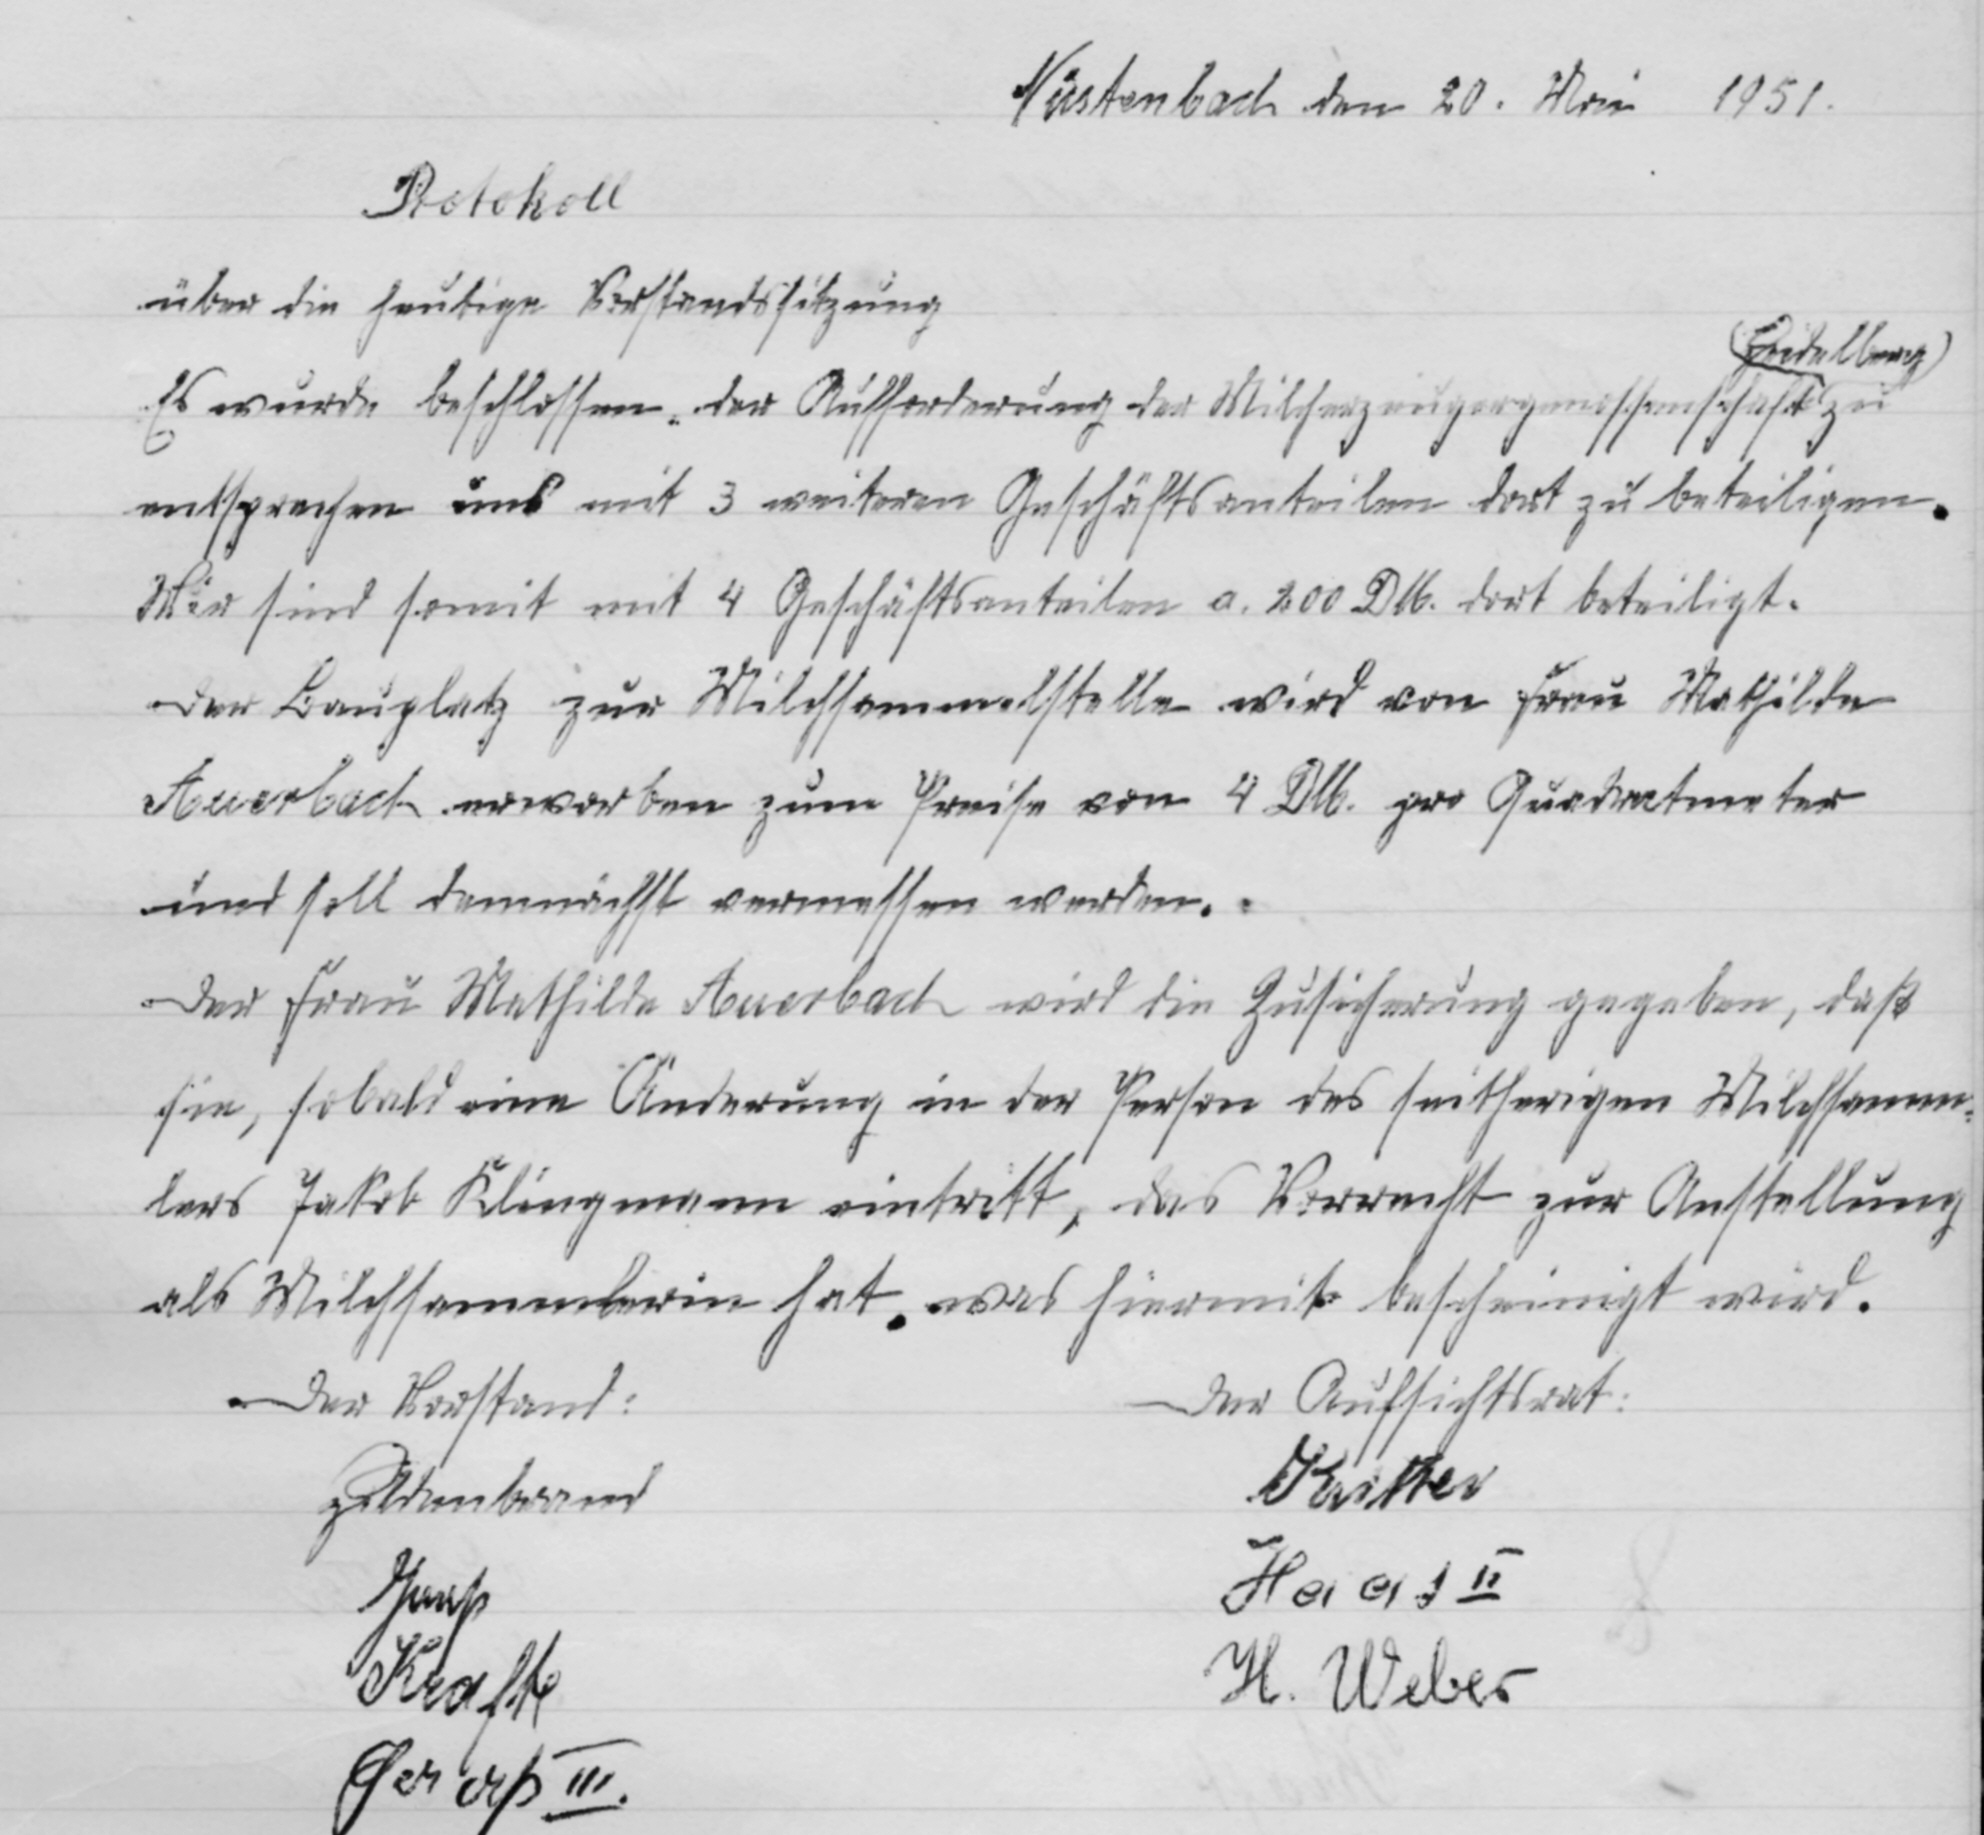 Nüstenbach den 20. Mai 1951.
Protokoll
über die heutige Vorstandssitzung
(Heidelberg)
Es wurde beschlossen, der Aufforderung der Milcherzeugergenossenschaft zu
entsprechen uns mit 3 weiteren Geschäftsanteilen dort zu beteiligen.
Wir sind somit mit 4 Geschäftsanteilen a. 200 DM. dort beteiligt.
Der Bauplatz zur Milchsammelstelle wird von Frau Mathilde
Auerbach erworben zum Preise von 4 DM. pro Quadratmeter
und soll demnächst vermessen werden.
Der Frau Mathilde Auerbach wird die Zusicherung gegeben, daß
sie, sobald eine Änderung in der Person des seitherigen Milchsamm-
lers Jakob Klingmann eintritt, das Vorrecht zur Anstellung
als Milchsammlerin hat, was hiermit bescheinigt wird.
Der Vorstand: Der Aufsichtsrat:
Haas II
Kraft H. Weber
III.